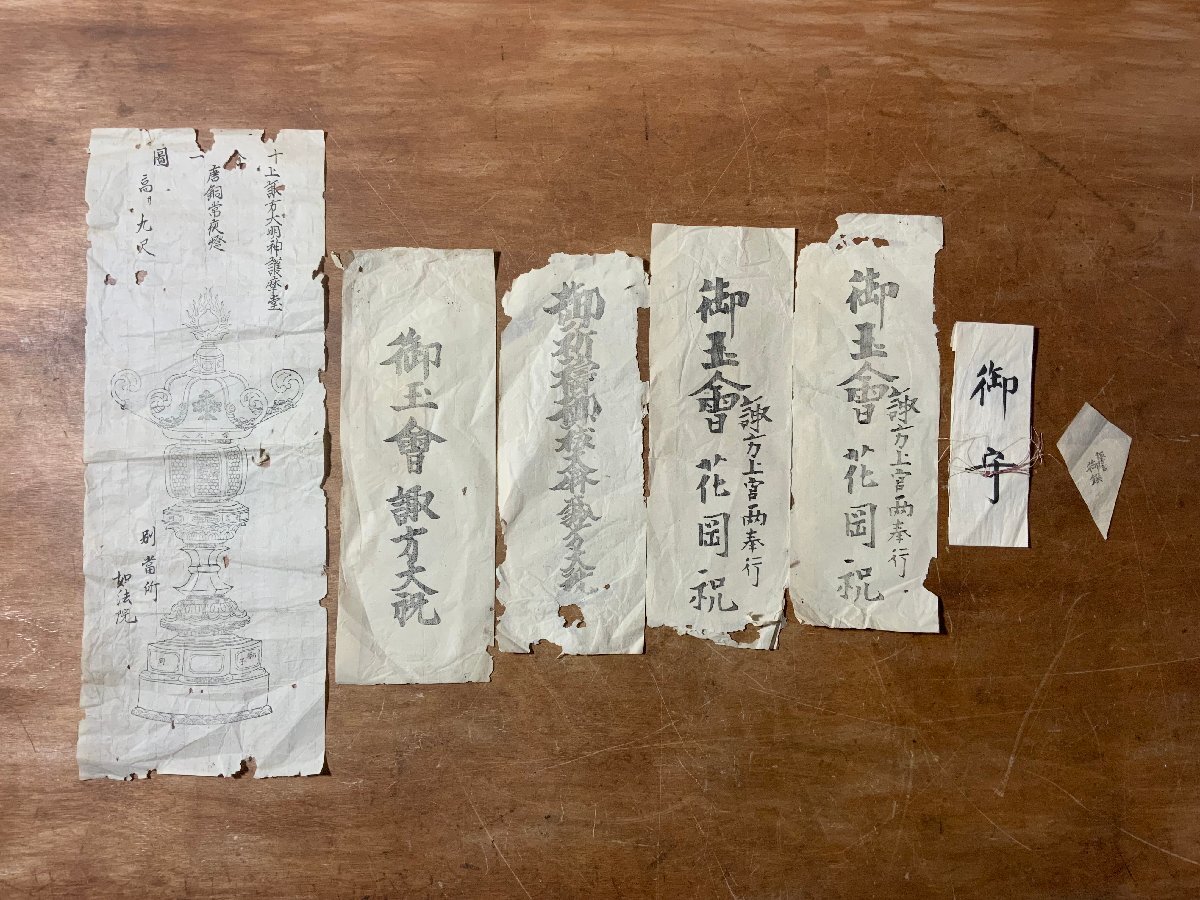 上諏方大明神護摩堂
唐銅常夜燈
一
圖
高サ九尺
別當所
如法院
御玉會 諏方大祝
御玉會 花岡祝
諏方上宮両奉行
御玉會 花岡祝
諏方上宮両奉行
御守